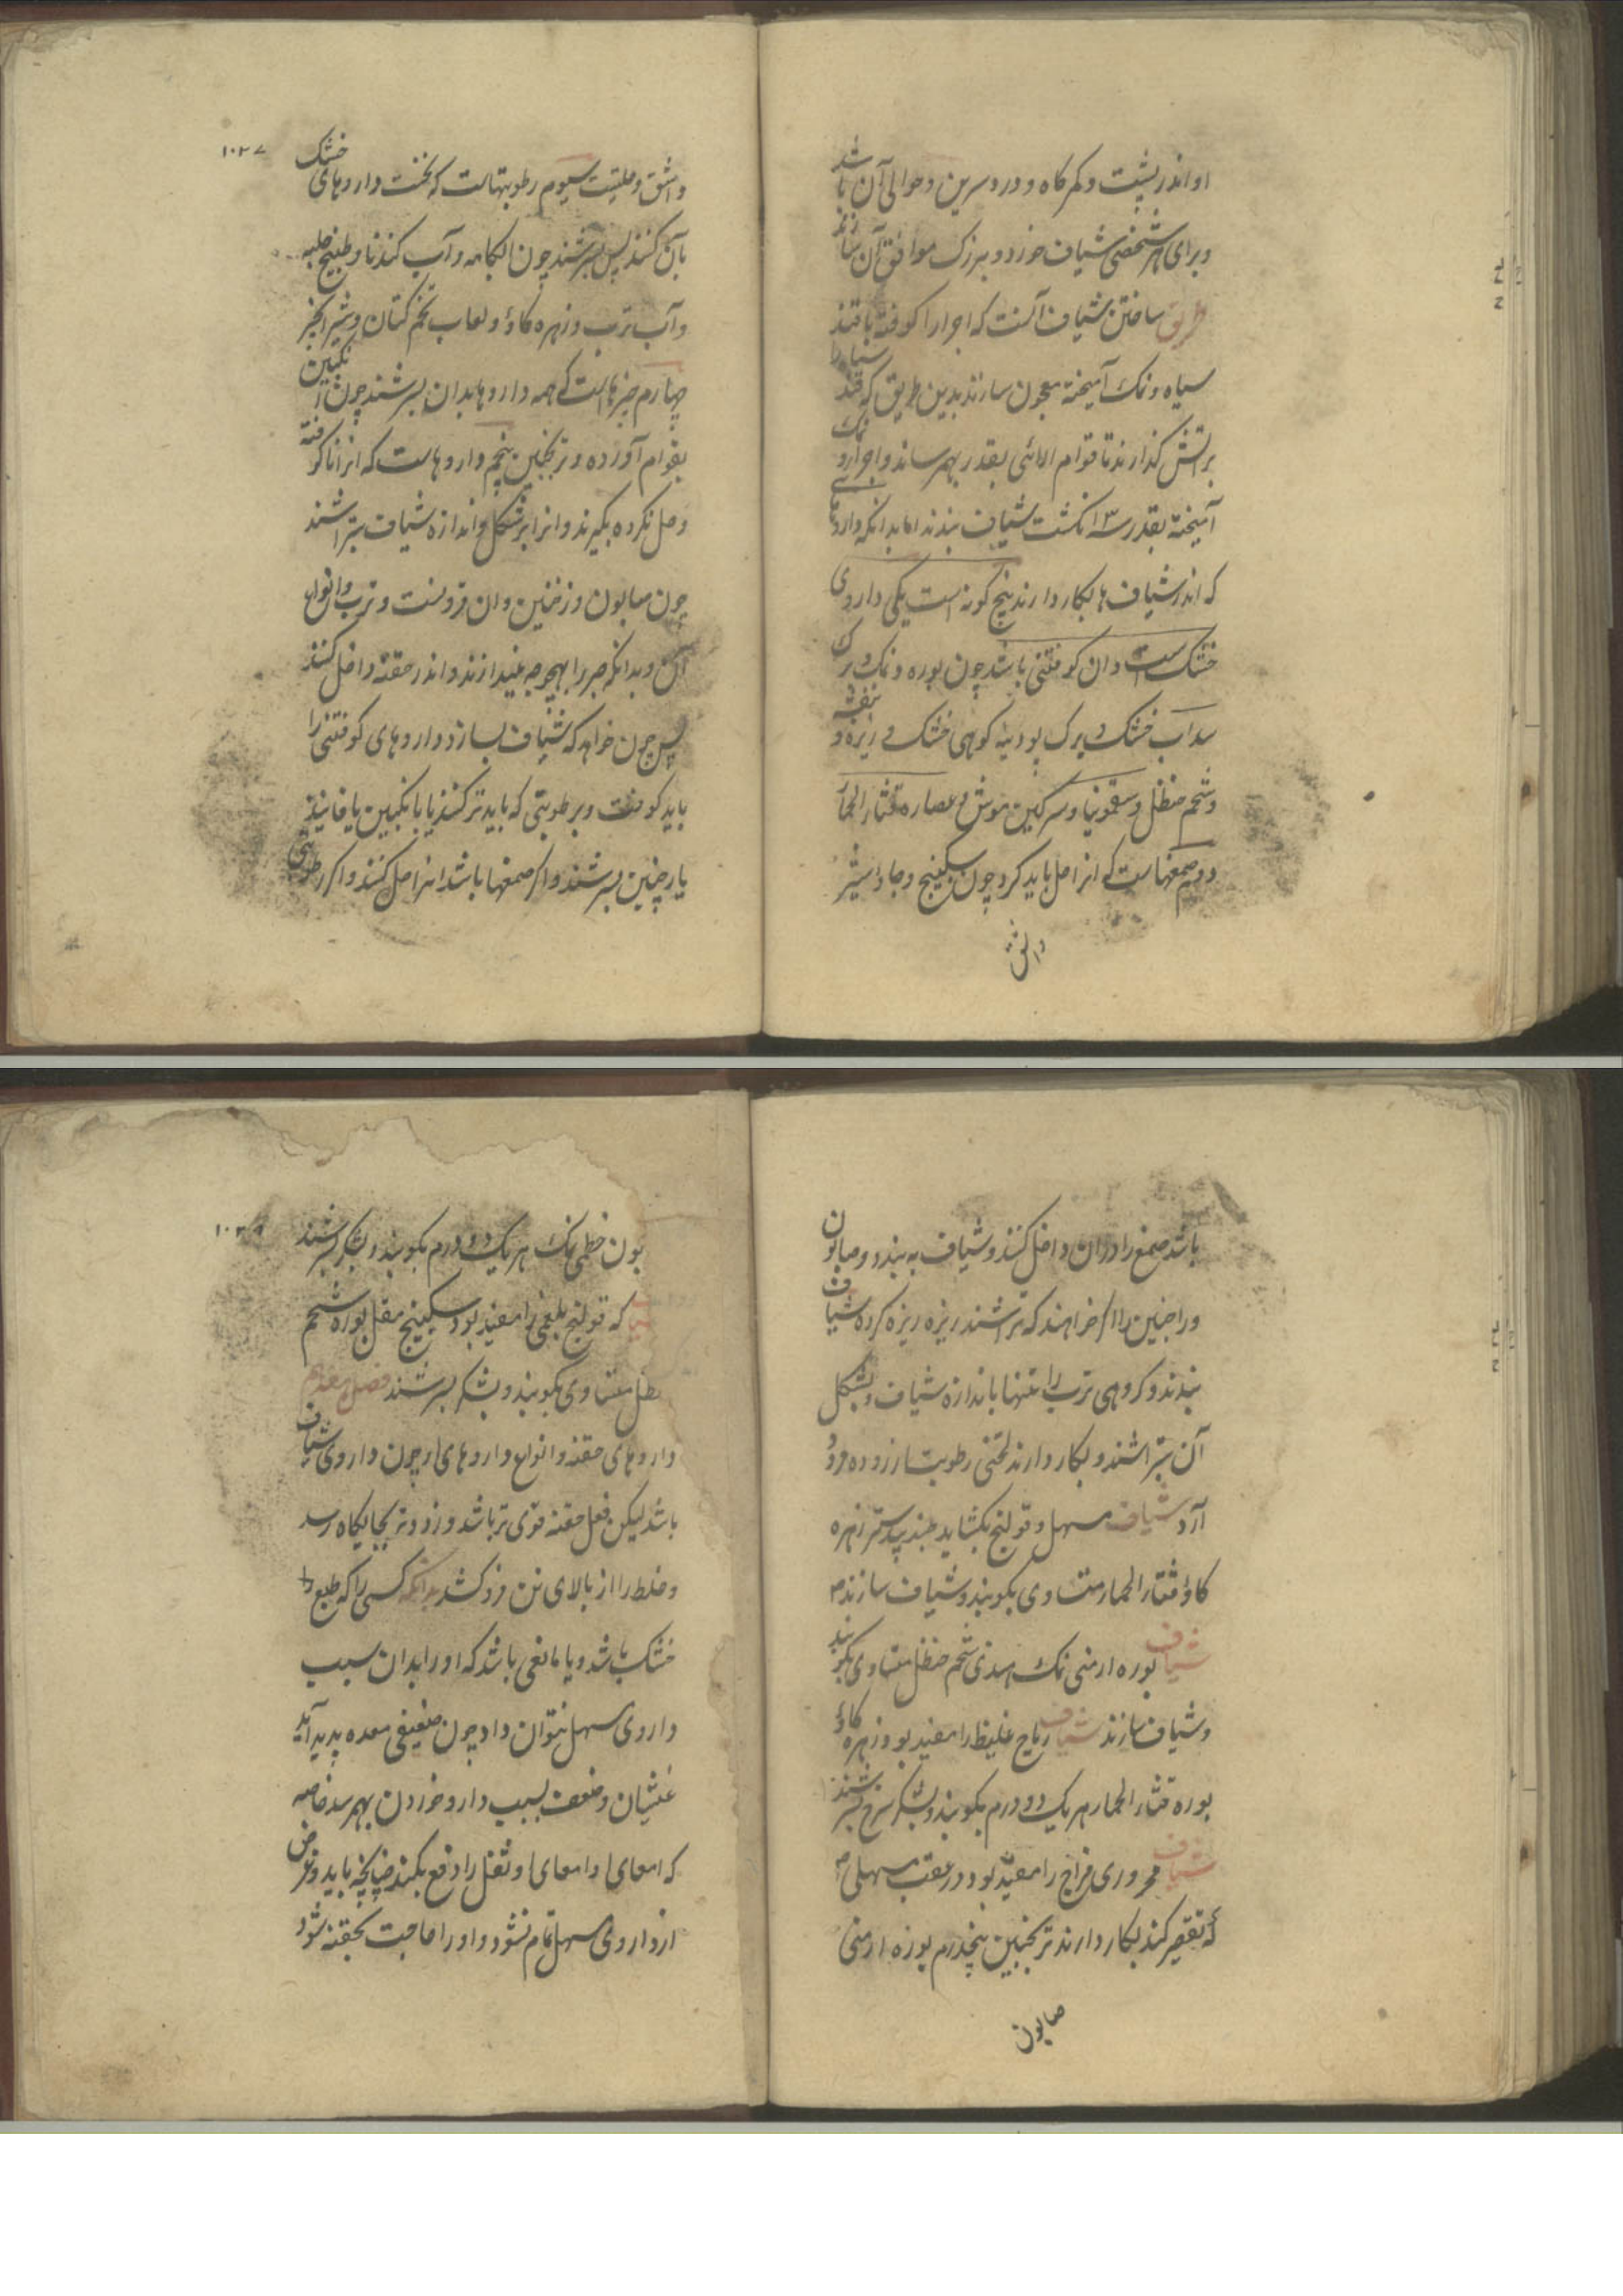 او اندر پشت و کمرگاه و درد سرین و حوالی آن باشد
و برای هر شخصی شیاف خرد و بزرک موافق آن سازند
طریق ساختن شیاف آنست که اجزا را کوفته با قند
سیاه و نمک آمیخته معجون سازند بدین طریق که قند سیاه را
بر آتش کذارند تا قوام بقدر بهم رساند و اجزا و نمک
آمیخته بقدر ۳ انکشت شیاف بندند اما بدانکه داروها
که اندر شیاف ها بکار دارند پنج کونه است یکی داروی
خشک است و ان کوفتنی باشد چون بوره و نمک و برک
سداب خشک و برک پودینه کوهی خشک و زیره و بنفشه
و شحم حنظل و سقمونیا و سرکین موش و عصاره قثار الحمار
دوم صمغهاست که انرا حل باید کرد چون سکبینج و جاوشیر
و اشق
۱۰۳۷
و اشق و حلتیت سیوم رطوبتهاست که نخست داروهای خشک
بآن کنند پس بسرشند چون آبکامه و آب کندنا و طبیخ حلبه
و آب ترب و زهره کاؤ و لعاب تخم کتان و شیر انجیر
چهارم چیزهاست که همه داروها بدان بسرشند چون انکبین
بقوام آورده و ترنجبین پنجم داروهاست که انرا ناکوفته
و حل نکرده بکیرند و انرا بر شکل و اندازه شیاف بتراشند
چون صابون و زنجبین وان فرونست و ترب و انواع
آن و بدانکه صبر را بهیچ وجه نیندازند و اندر حقنه داخل کنند
پس چون خواهد که شیاف بسازد داروهای کوفتنی را
باید کوفت و برطوبتی که باید تر کنند یا با انکبین یا فانیذ
یا ترنجبین بسرشند و اکر صمغها باشد انرا حل کنند و اکر رطوبتی
باشد صمغ را دران داخل کنند و شیاف به بندد و صابون
ورا جنین را اکر خواهند که بسرشند ریزه ریزه کرده شیاف
بندند و کروهی ترب را تنها باندازه شیاف و بشکل
آن بتراشند و بکار دارند لختی رطوبت از روده فرود
آرد شیاف مسهل و قولنج بکشاید جندبیدستر زهره
کاؤ قثار الحمار متساوی بکوبند و شیاف سازند
شیاف بوره ارمنی نمک هندی شحم حنظل متساوی بکوبند
و شیاف سازند شیاف ریاح غلیظ را مفید بود زهره کاؤ
بوره قثار الحمار هر یک دو درم بکوبند و بشکر سرخ بسرشند
شیاف محروری مزاج را مفید بود در عقب مسهلی
که تقصیر کند بکار دارند ترنجبین پنجدرم بوره ارمنی
صابون
بون خطمی نمک هر یک دو درم بکوبند و بشکر بسرشند
که قولنج بلغمی را مفید بود سکبینج مقل بوره شحم
نظل متساوی بکوبند و بشکر بسرشند فصل
داروهای حقنه و انواع داروهای او چون داروی شیاف
باشد لیکن فعل حقنه قوی تر باشد و زودتر بجایکاه رسد
و خلط را از بالای تن فرو کشد بدانکه کسی را که طبع
خشک باشد و یا مانعی باشد که او را بدان سبب
داروی مسهل نتوان داد چون ضعیفی معده پدید آید
غثیان و ضعف بسبب دارو خوردن بهم رسد خاصه
که امعای او ثفل را دفع نکند چنانچه باید و غرض
از داروی مسهل تمام نشود و او را حاجت بحقنه شود